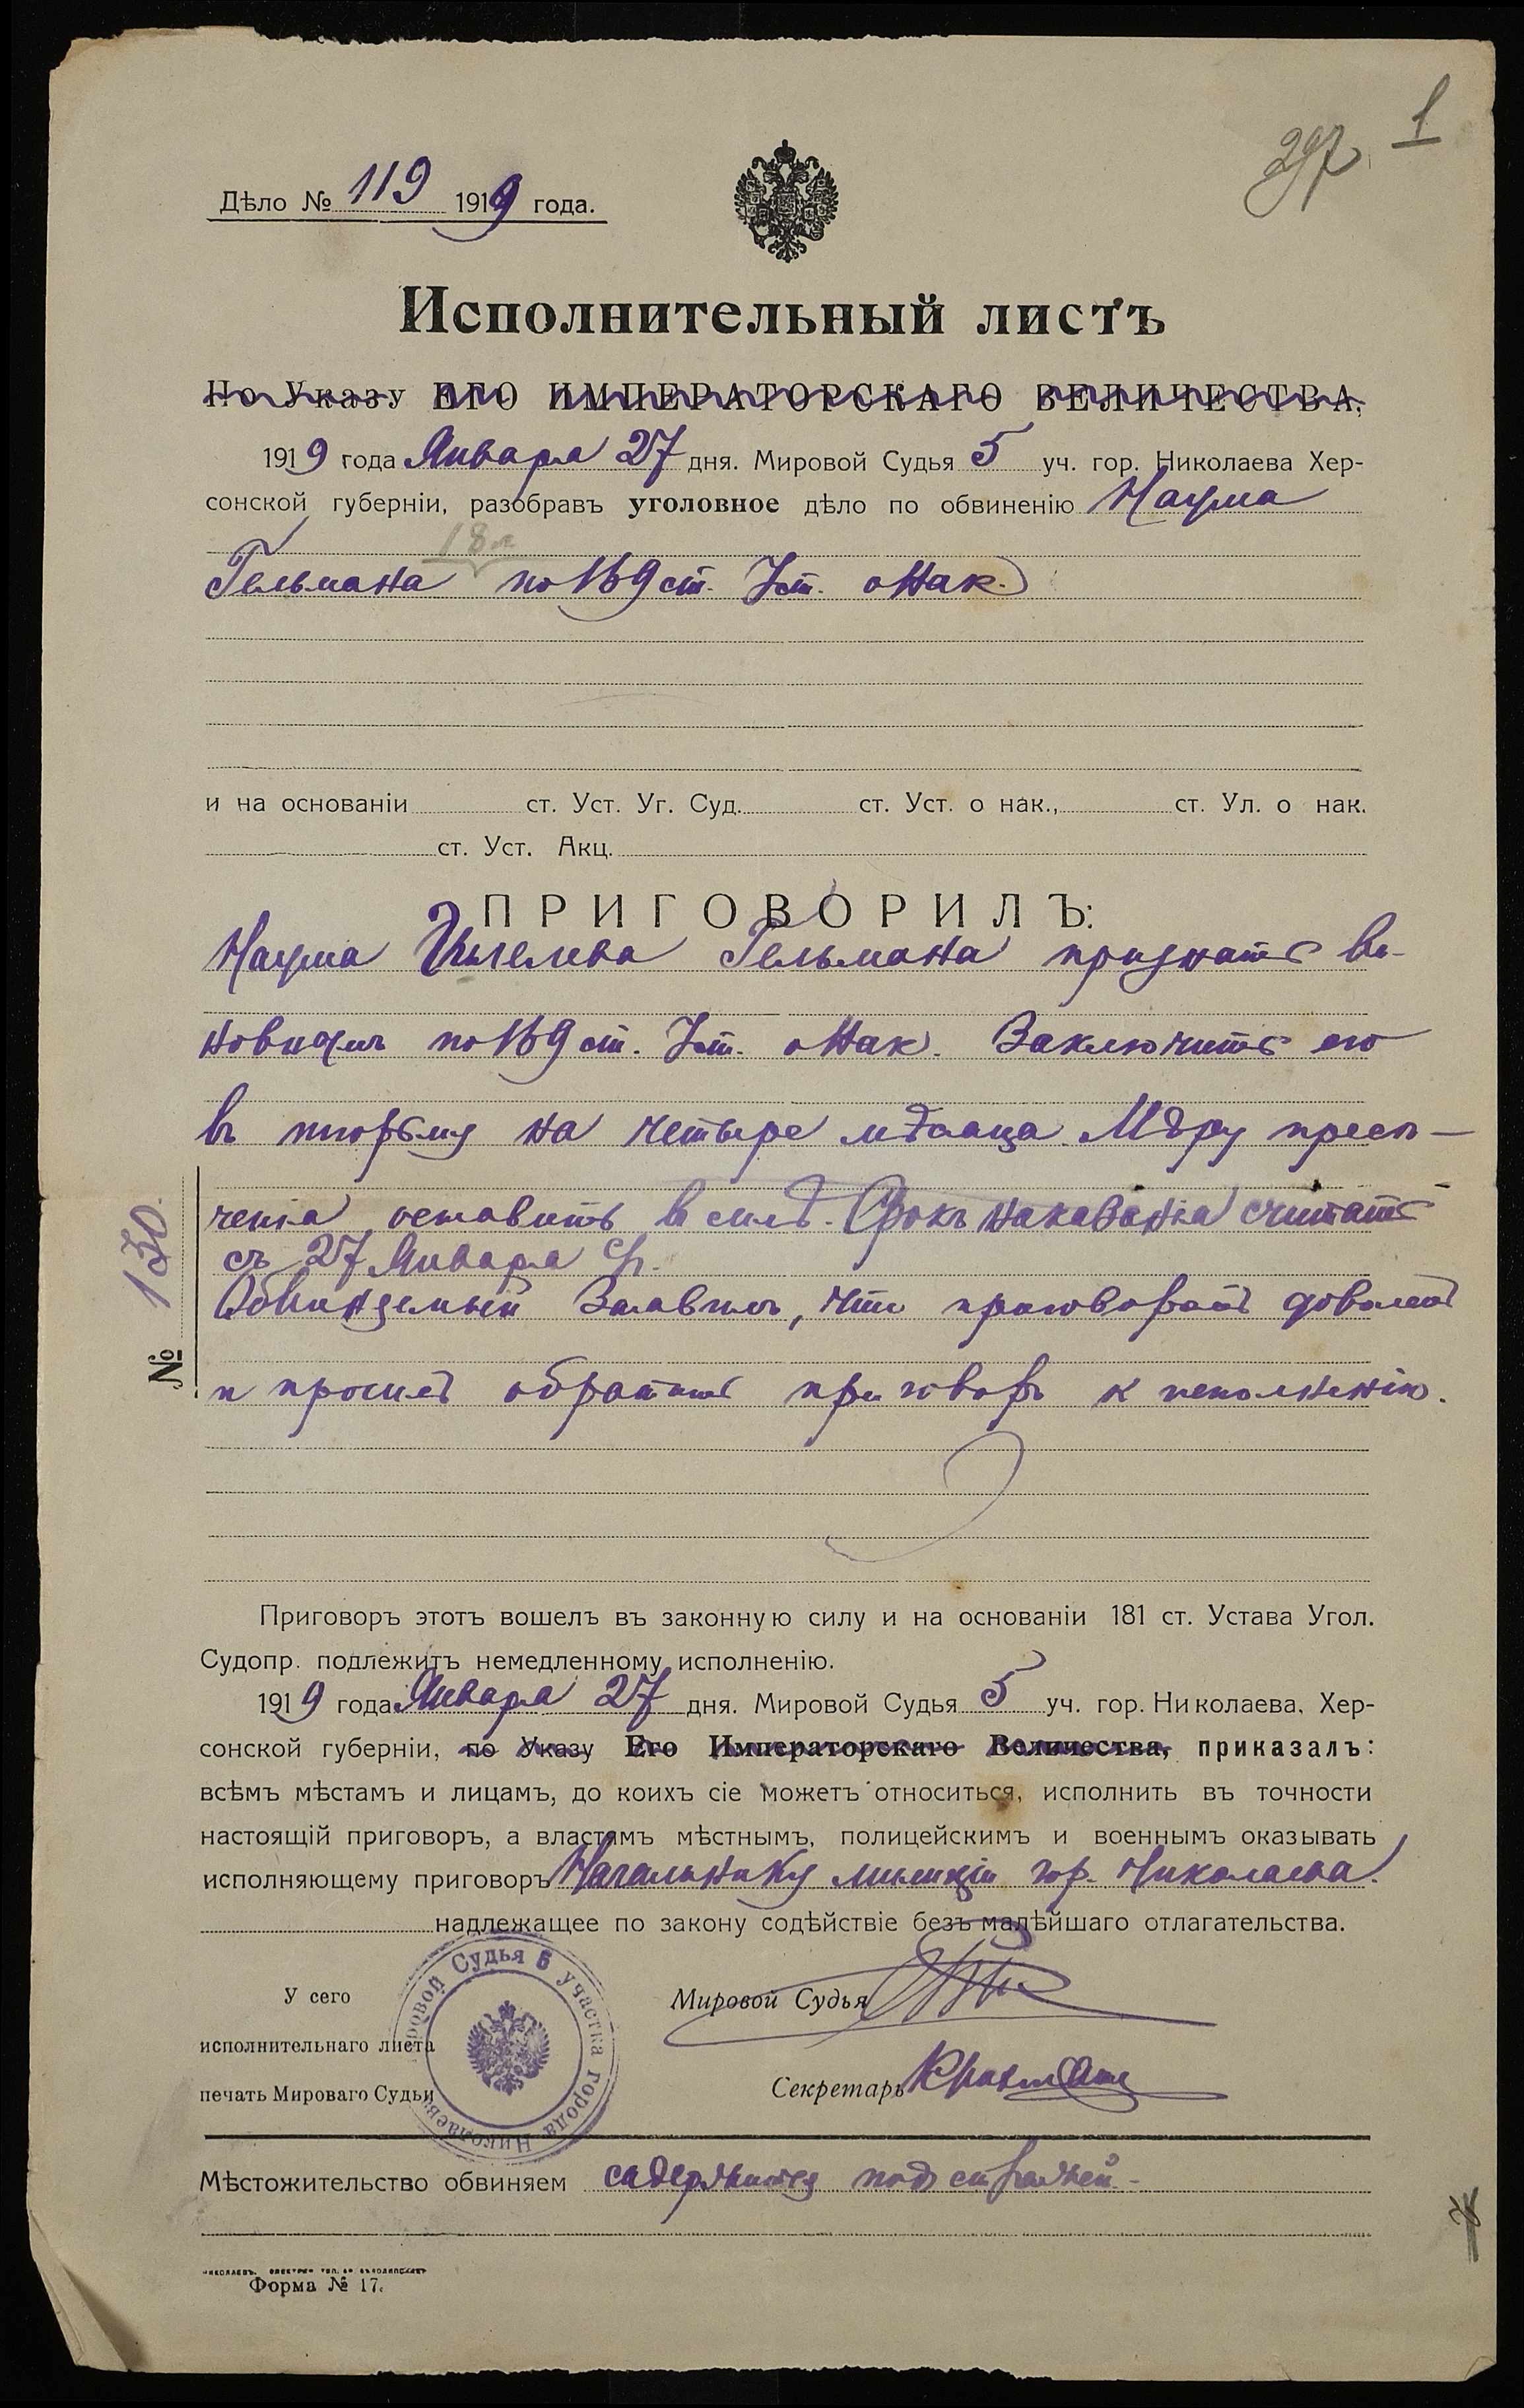 297
1
Дѣло № 119 1919 года.
Исполнительный листъ
По Указу ЕГО ИМПЕРАТОРСКАГО ВЕЛИЧЕСТВА,
1919 года Января 27 дня. Мировой Судья 5 уч. гор. Николаева Хер-
сонской губерніи, разобравъ уголовное дѣло по обвиненію Наума
18 л.
Гельмана по 169 ст. Уст. о Нак.
и на основаніи ст. Уст. Уг. Суд. ст. Уст. о нак., ст. Ул. о нак.
ст. Уст. Акц.
ПРИГОВОРИЛЪ:
Наума Гельмана признать ви-
новнымъ по 169 ст. Уст. о Нак. Заключить его
въ тюрьму на четыре мѣсяца. Мѣру пресѣ-
ченія оставить въ силѣ. Срокъ наказанія считать
съ 27 Января с/г.
Обвиняемый заявилъ, что приговоромъ доволенъ
и проситъ обратить приговоръ к исполненію.
№ 130
Приговоръ этотъ вошелъ въ законную силу и на основаніи 181 ст. Устава Угол.
Судопр. подлежитъ немедленному исполненію.
1919 года Января 27 дня. Мировой Судья 5 уч. гор. Николаева, Хер-
сонской губерніи, по Указу Его Императорскаго Величества, приказалъ:
всѣмъ мѣстамъ и лицамъ, до коихъ сіе можетъ относиться, исполнить въ точности
настоящій приговоръ, а властямъ мѣстнымъ, полицейскимъ и военнымъ оказывать
исполняющему приговоръ Начальнику милиціи гор. Николаева
надлежащее по закону содѣйствіе безъ малѣйшаго отлагательства.
У сего
исполнительнаго листа
печать Мироваго Судьи
Мировой Судья 5 участка города Николаева
Мировой Судья
Секретарь
Мѣстожительство обвиняем содержится под стражей
Форма № 17.